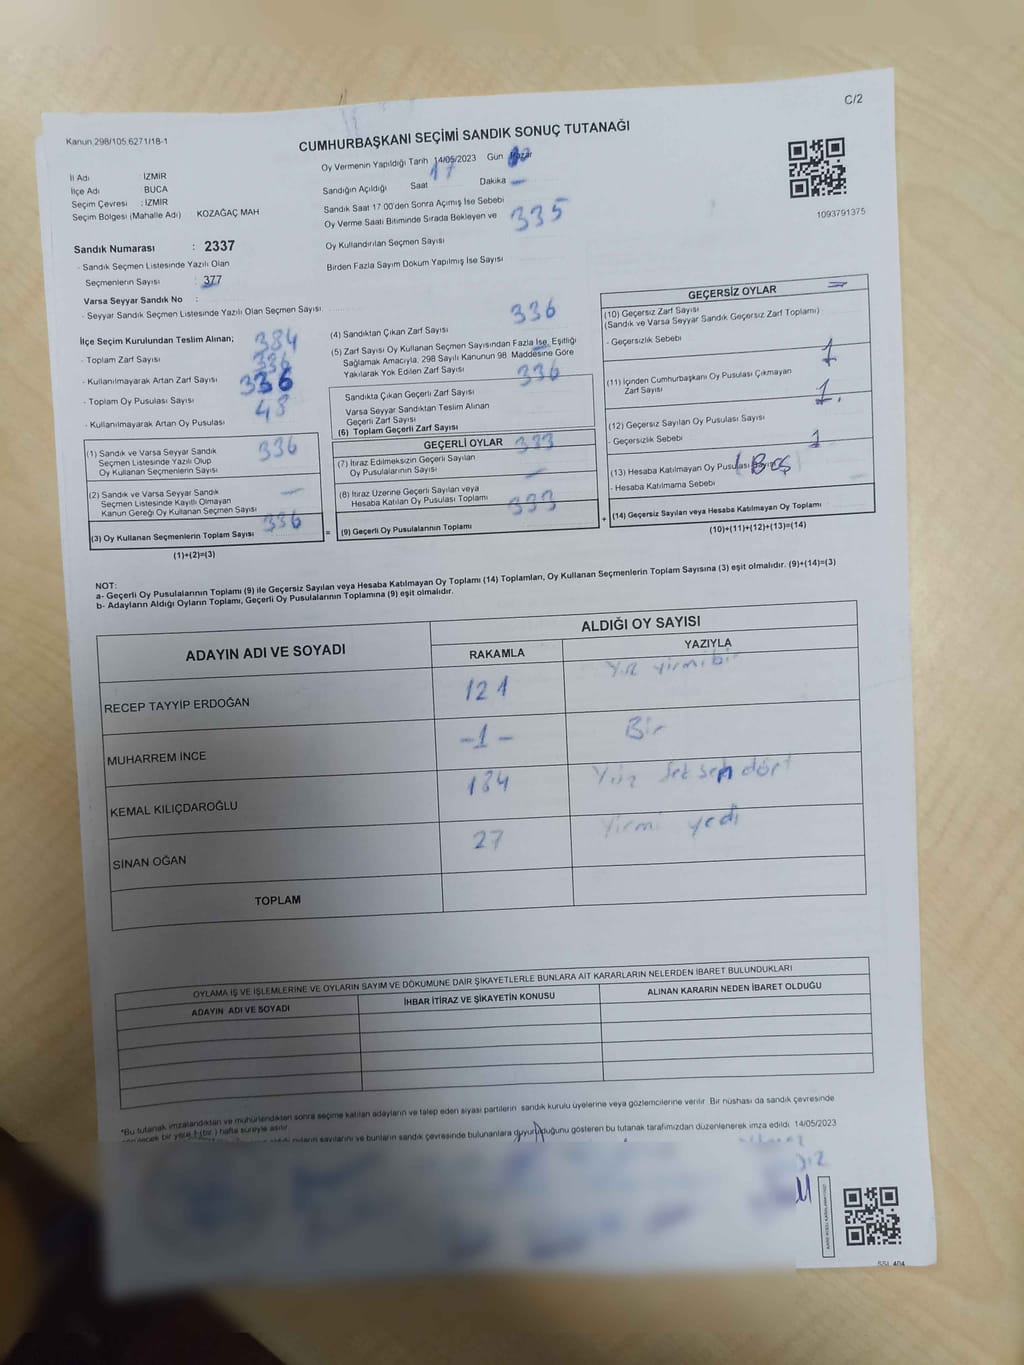 C/2
Kanun 298/105.6271/18-1
CUMHURBAŞKANI SEÇİMİ SANDIK SONUÇ TUTANAĞI
Oy Vermenin Yapıldığı Tarih 14/05/2023 Gün Pazar
İl Adı İZMİR
İlçe Adı BUCA
Seçim Çevresi : İZMİR
Seçim Bölgesi (Mahalle Adı) KOZAĞAÇ MAH
Sandığın Açıldığı Saat 17 Dakika –
Sandık Saat 17 00'den Sonra Açımış İse Sebebi
Oy Verme Saati Bitiminde Sırada Bekleyen ve 335
Oy Kullandırılan Seçmen Sayısı
Birden Fazla Sayım Döküm Yapılmış İse Sayısı
1093791375
Sandık Numarası : 2337
- Sandık Seçmen Listesinde Yazılı Olan
Seçmenlerin Sayısı : 377
Varsa Seyyar Sandık No :
- Seyyar Sandık Seçmen Listesinde Yazılı Olan Seçmen Sayısı
İlçe Seçim Kurulundan Teslim Alınan; 384
- Toplam Zarf Sayısı 336
- Kullanılmayarak Artan Zarf Sayısı 336
- Toplam Oy Pusulası Sayısı 48
- Kullanılmayarak Artan Oy Pusulası
(1) Sandık ve Varsa Seyyar Sandık 336
Seçmen Listesinde Yazılı Olup
Oy Kullanan Seçmenlerin Sayısı
(2) Sandık ve Varsa Seyyar Sandık –
Seçmen Listesinde Kayıtlı Olmayan
Kanun Gereği Oy Kullanan Seçmen Sayısı
(3) Oy Kullanan Seçmenlerin Toplam Sayısı 336
(1)+(2)=(3)
(4) Sandıktan Çıkan Zarf Sayısı 336
(5) Zarf Sayısı Oy Kullanan Seçmen Sayısından Fazla İse, Eşitliği
Sağlamak Amacıyla, 298 Sayılı Kanunun 98. Maddesine Göre
Yakılarak Yok Edilen Zarf Sayısı
Sandıkta Çıkan Geçerli Zarf Sayısı 336
Varsa Seyyar Sandıktan Teslim Alınan
Geçerli Zarf Sayısı
(6) Toplam Geçerli Zarf Sayısı
GEÇERLİ OYLAR 333
(7) İtiraz Edilmeksizin Geçerli Sayılan
Oy Pusulalarının Sayısı –
(8) İtiraz Üzerine Geçerli Sayılan veya
Hesaba Katılan Oy Pusulası Toplamı 333
= (9) Geçerli Oy Pusulalarının Toplamı
GEÇERSİZ OYLAR
(10) Geçersiz Zarf Sayısı
(Sandık ve Varsa Seyyar Sandık Geçersiz Zarf Toplamı)
- Geçersizlik Sebebi 1
(11) İçinden Cumhurbaşkanı Oy Pusulası Çıkmayan
Zarf Sayısı 1.
(12) Geçersiz Sayılan Oy Pusulası Sayısı
- Geçersizlik Sebebi 1
(13) Hesaba Katılmayan Oy Pusulası Sayısı
- Hesaba Katılmama Sebebi
+ (14) Geçersiz Sayılan veya Hesaba Katılmayan Oy Toplamı
(10)+(11)+(12)+(13)=(14)
NOT:
a- Geçerli Oy Pusulalarının Toplamı (9) ile Geçersiz Sayılan veya Hesaba Katılmayan Oy Toplamı (14) Toplamları, Oy Kullanan Seçmenlerin Toplam Sayısına (3) eşit olmalıdır. (9)+(14)=(3)
b- Adayların Aldığı Oyların Toplamı, Geçerli Oy Pusulalarının Toplamına (9) eşit olmalıdır.
ADAYIN ADI VE SOYADI ALDIĞI OY SAYISI
RAKAMLA YAZIYLA
RECEP TAYYİP ERDOĞAN 121 Yüz yirmibir
MUHARREM İNCE -1- Bir
KEMAL KILIÇDAROĞLU 184 Yüz seksen dört
SİNAN OĞAN 27 Yirmi yedi
TOPLAM
OYLAMA İŞ VE İŞLEMLERİNE VE OYLARIN SAYIM VE DÖKÜMÜNE DAİR ŞİKAYETLERLE BUNLARA AİT KARARLARIN NELERDEN İBARET BULUNDUKLARI
ADAYIN ADI VE SOYADI İHBAR İTİRAZ VE ŞİKAYETİN KONUSU ALINAN KARARIN NEDEN İBARET OLDUĞU
*Bu tutanak imzalandıktan ve mühürlendikten sonra seçime katılan adayların ve talep eden siyasi partilerin sandık kurulu üyelerine veya gözlemcilerine verilir. Bir nüshası da sandık çevresinde
bir yere 1 (bir) hafta süreyle asılır.
sayılarını ve bunların sandık çevresinde bulunanlara duyurulduğunu gösteren bu tutanak tarafımızdan düzenlenerek imza edildi 14/05/2023